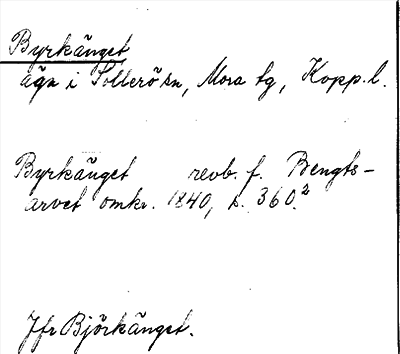 Byrkänget
äga i Sollerö sn, Mora tg, Kopp. l.
Byrkänget revb. f. Bengts-
arvet omkr. 1840, s. 360.²
Jfr Björkänget.